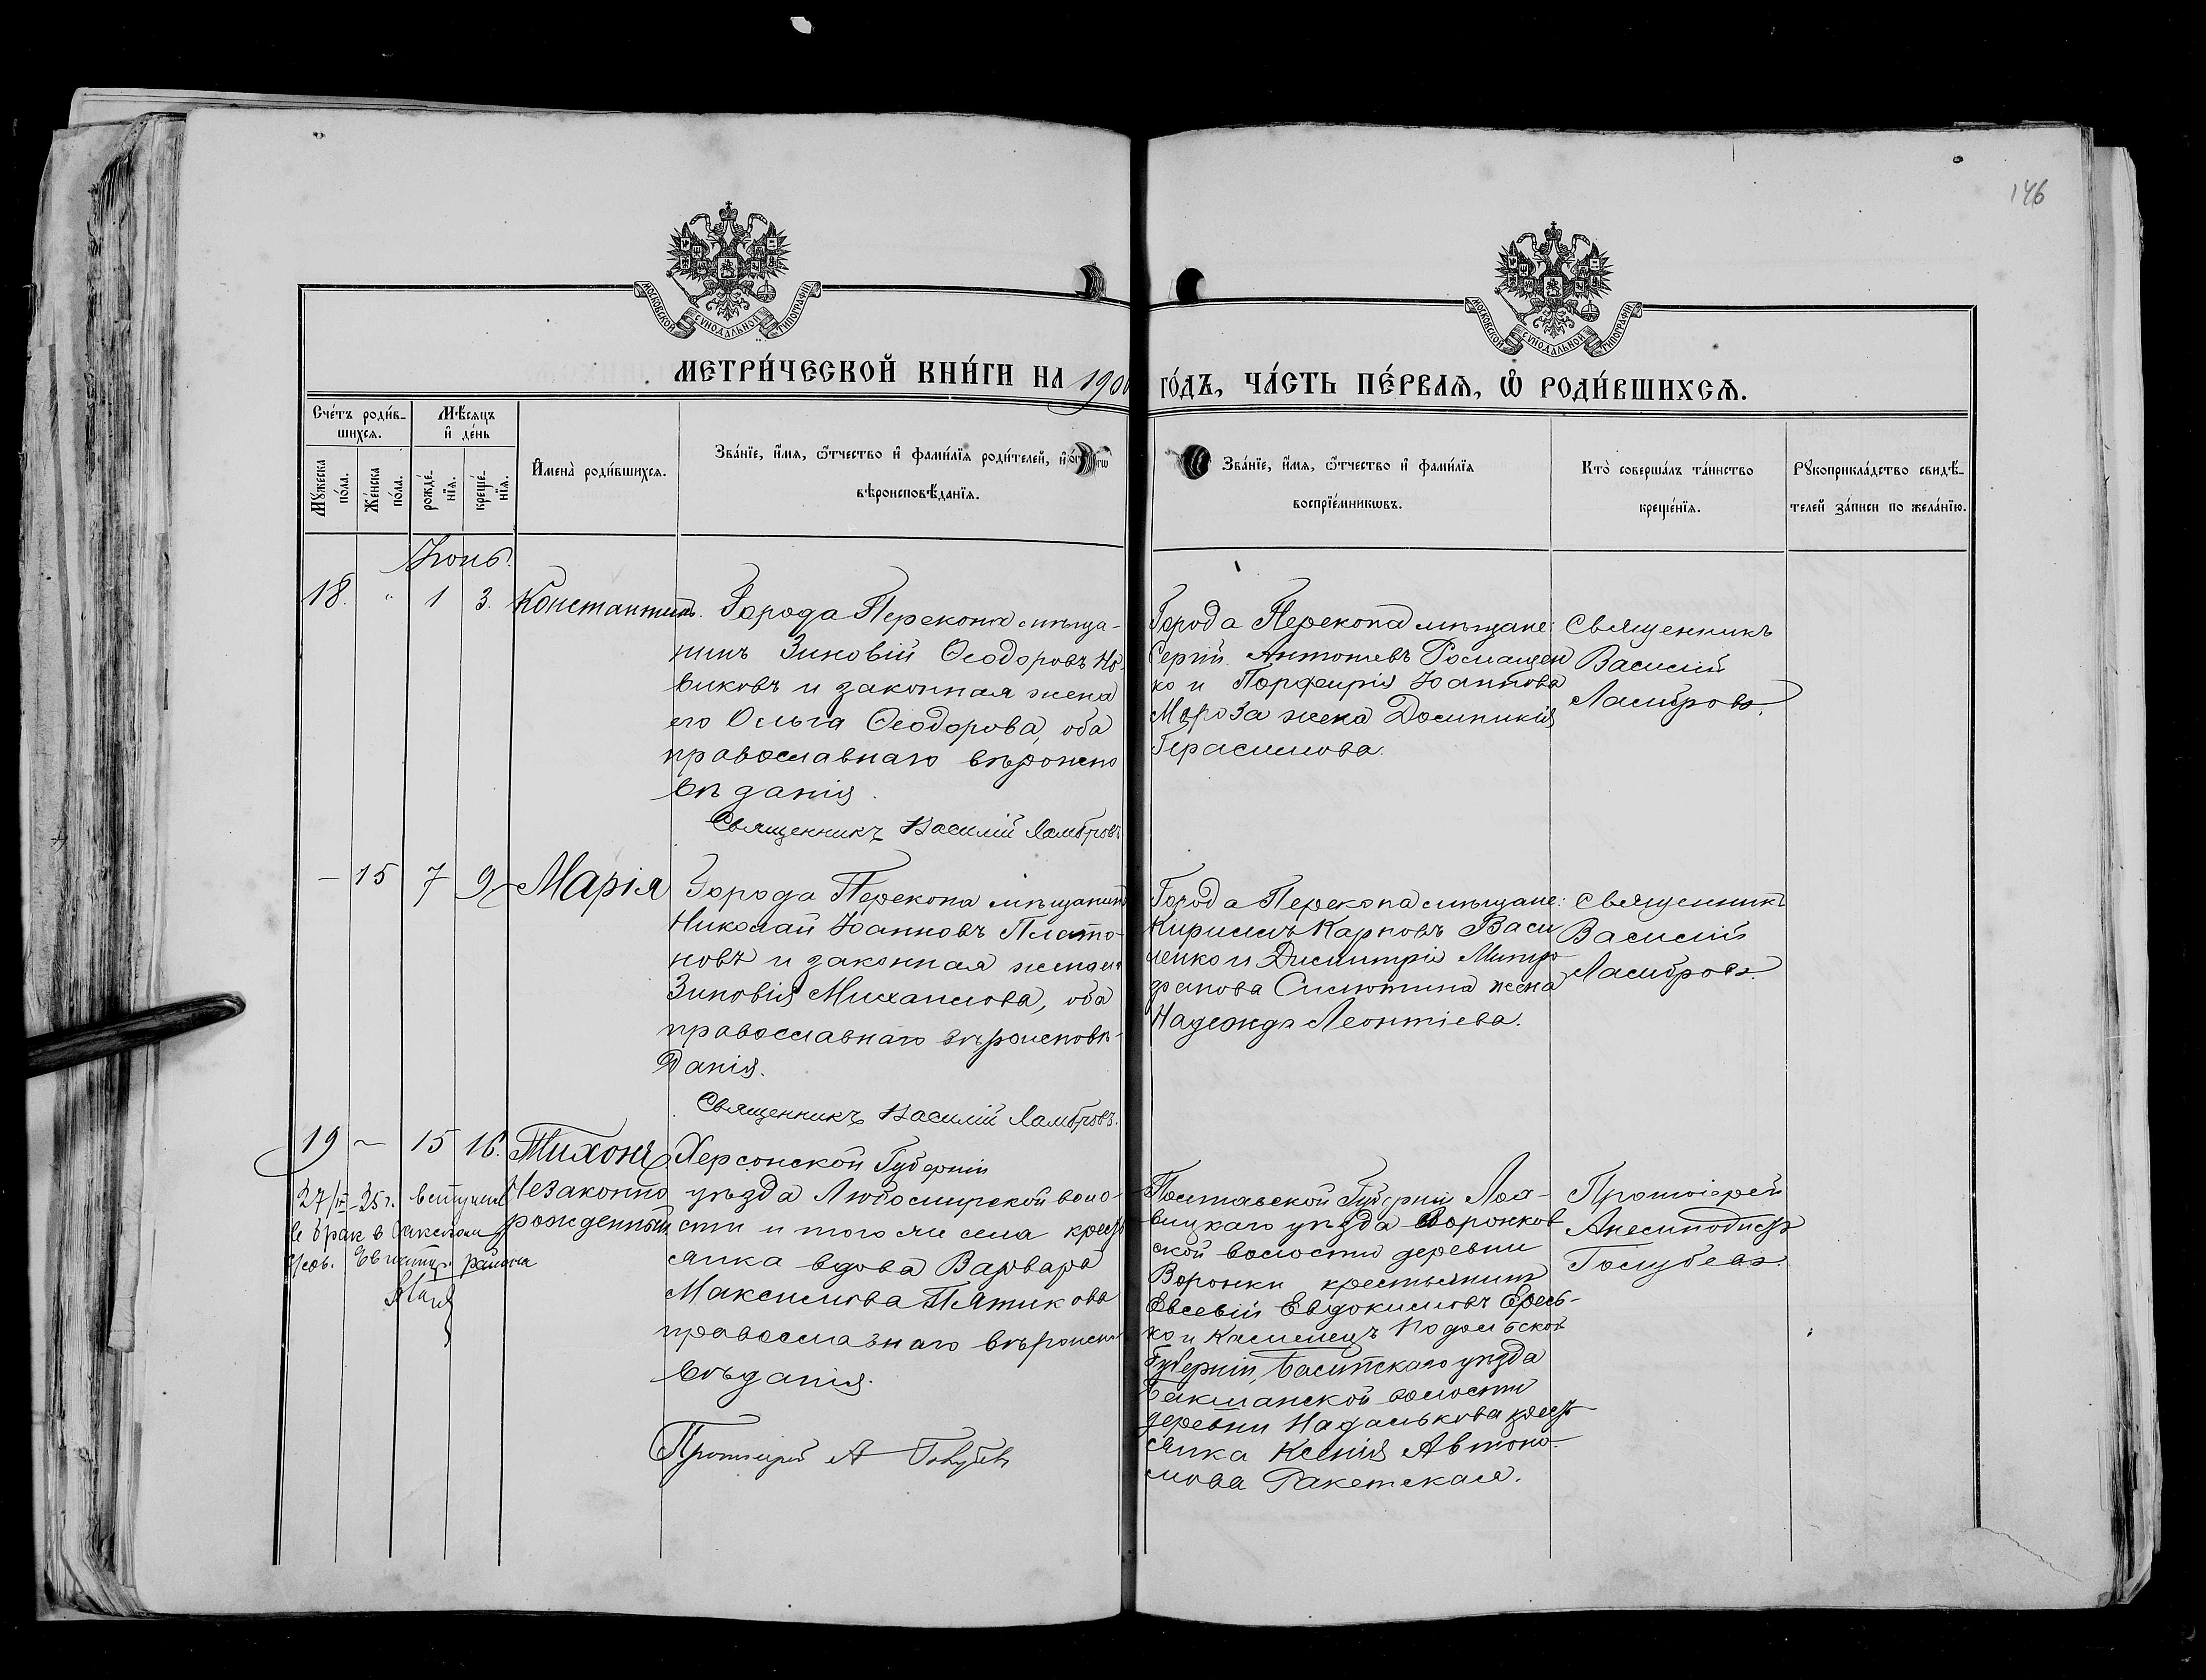 146
МОСКОВСКОЙ СУНОДАЛЬНОЙ ТИПОГРАФІИ
МОСКОВСКОЙ СУНОДАЛЬНОЙ ТИПОГРАФІИ
МЕТРИ́ЧЕСКОЙ КНИ́ГИ НА 190
ГО́ДЪ, ЧА́СТЬ ПЕ́РВАѦ, Ѡ҆ РОДИ́ВШИХСѦ.
Сче́тъ роди́в-
шихсѧ.
Мѣ́сѧцъ
и҆ де́нь
Мꙋ́жеска
по́ла.
Же́нска
по́ла.
рожде́-
нїѧ.
креще́-
нїѧ.
И҆мена̀ роди́вшихсѧ.
Зва́нїе, и҆́мѧ, ѻ҆́тчество и҆ фами́лїѧ роди́телей, и҆
вѣроисповѣ́данїѧ.
Зва́нїе, и҆́мѧ, ѻ҆́тчество и҆ фами́лїѧ
воспрїе́мникѡвъ.
Кто̀ соверша́лъ та́инство
креще́нїѧ.
Рꙋкоприкла́дство свидѣ́-
телей за́писи по жела́нїю.
Іюнь.
18. " 1 3. Константинъ.
Города Перекопа мѣща-
нинъ Зиновій Ѳеодоровъ Но-
виковъ и законная жена
его Ольга Ѳеодорова, оба
православнаго вѣроиспо
вѣданія.
Священникъ Василій Ламбровъ
Города Перекопа мѣщане:
Сергій Антоновъ Ромащен
ко и Порфирія Іоаннова
Мороза жена Домникія
Герасимова.
Священникъ
Василій
Ламбровъ.
— 15 7 9 Марія
Города Перекопа мѣщанинъ
Николай Іоанновъ Плато-
новъ и законная жена его
Зиновія Михаилова, оба
православнаго вѣроисповѣ-
данія.
Священникъ Василій Ламбровъ.
Города Перекопа мѣщане:
Кириллъ Карповъ Васи
ленко и Димитрія Митро
фанова жена
Надежда Леонтіева.
Священникъ
Василій
Ламбровъ.
19 — 15 16. Тихонъ
Незаконно
рожденный
27/ -25 г. вступил
в брак в
Евпатор. района
Херсонской Губерніи
уѣзда Любомирской воло-
сти и того же села кресть
янка вдова Варвара
Максимова Пятикова
православнаго вѣроиспо
вѣданія.
Протоіерей А Голубевъ
Полтавской Губерніи Лох-
вицкаго уѣзда Воронков
ской волости деревни
Воронки крестьянинъ
Евсевій Евдокимовъ Ересь-
ко и Каменецъ Подольской
Губерніи, уѣзда
волости
деревни кресть
янка Ксенія Автоно-
мова Ракетская.
Протоіерей
Анемподистъ
Голубевъ.